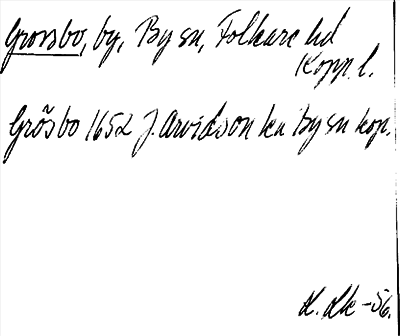 Grossbo, by, By sn, Folkare hd
Kopp. l.
Grõsbo 1652 J. Arvidson ka By sn kop.
K. Lk -56.